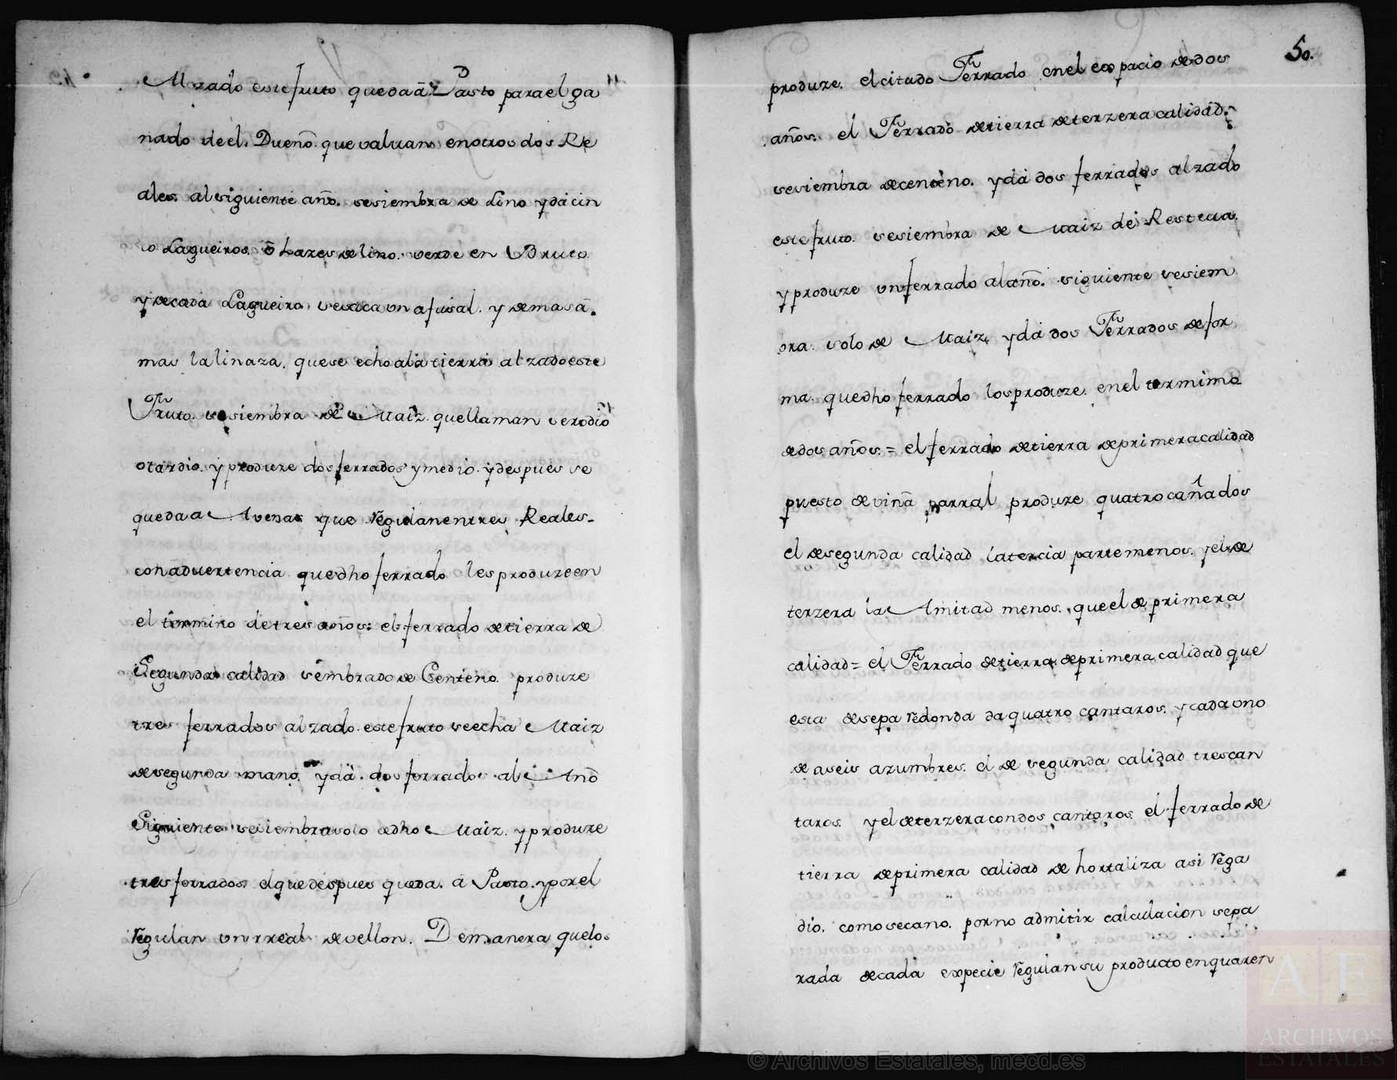 Alzado este fruto queda á Pasto para el ga
nado de el Dueño. que valuan en otros dos Re
ales. al siguiente año. se siembra de Lino y dá cin
co Lagueiros. ô hazes de lino. verde en Bruto
y de cada Lagueiro se saca un afusal. y demas á.
mas la linaza. que se echo ala tierra alzado este
Fruto. se siembra de Maiz. que llaman serodio
otardio. y produze dos ferrados y medio. y despues se
queda a que regulan en tres Reales-
con aduertencia que dho ferrado les produze en
el termino de tres años: el ferrado de tierra de
Segunda calidad sembrado de Centeno produze
tres ferrados alzado este fruto se echa Maiz
de segunda mano. y dá. dos ferrados al Año
Siguiente se siembra solo de dho Maiz. y produze
tres ferrados. el que despues queda. á Pasto. y por el
regulan un rreal de vellon. Demanera que los
50.
produze. el citado Ferrado en el espacio de dos
años. el Ferrado de tierra de terzera calidad.
se siembra de centeno. y dá dos ferrados alzado
este fruto. se siembra de Maiz de Resteva.
y produze un ferrado al año. siguiente se siem
bra. solo de Maiz y dá dos Ferrados de for
ma. que dho ferrado los produze. en el termimo
de dos años.= el ferrado de tierra de primera calidad
puesto de viña parral produze quatro cañados
el de segunda calidad la tercia parte menos. y el de
terzera la Amitad menos. que el de primera
calidad= el Ferrado de tierra de primera calidad que
esta de sepa redonda da quatro cantaros. y cada ono
de a seis azumbres. el de segunda calidad tres can
taros y el de terzera con dos cantaros. el ferrado de
tierra de primera calidad de hortaliza asi rega
dio. como secano. por no admitir calculacion sepa
rada de cada expecie regulan su producto en quaren
© Archivos Estatales, mecd.es
AE
ARCHIVOS
ESTATALES